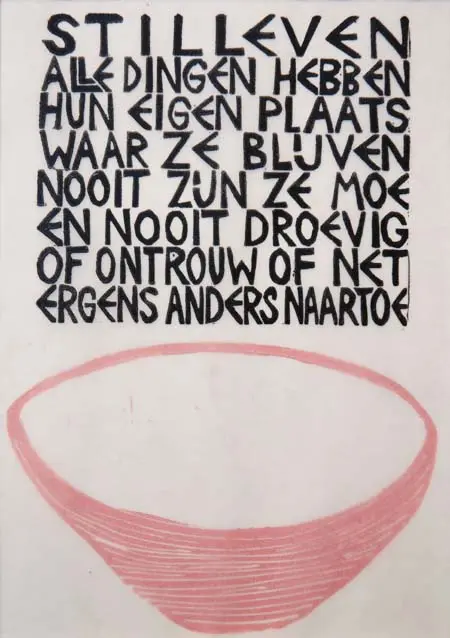 STILLEVEN
ALLE DINGEN HEBBEN
HUN EIGEN PLAATS
WAAR ZE BLIJVEN
NOOIT ZIJN ZE MOE
EN NOOIT DROEVIG
OF ONTROUW OF NET
ERGENS ANDERS NAARTOE